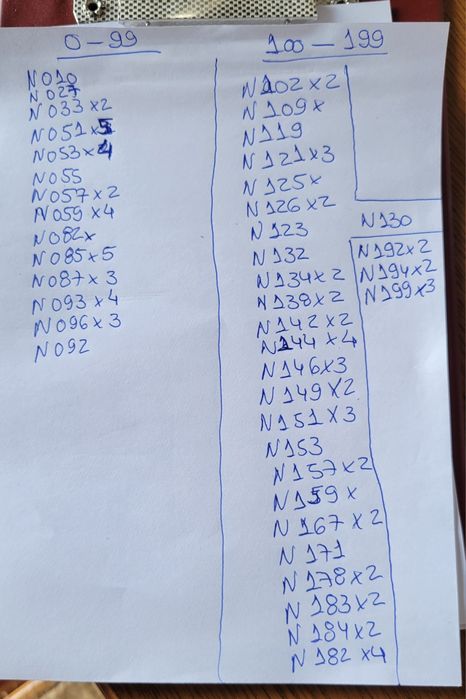 0-99
N010
N027
N033x2
N051x5
N053x4
N055
N057x2
N059x4
N082x
N085x5
N087x3
N093x4
N096x3
N092
100-199
N102x2
N109x
N119
N121x3
N125x
N126x2
N123
N132
N134x2
N138x2
N142x2
N144x4
N146x3
N149x2
N151x3
N153
N157x2
N159x
N167x2
N171
N178x2
N183x2
N184x2
N182x4
N130
N192x2
N194x2
N199x3